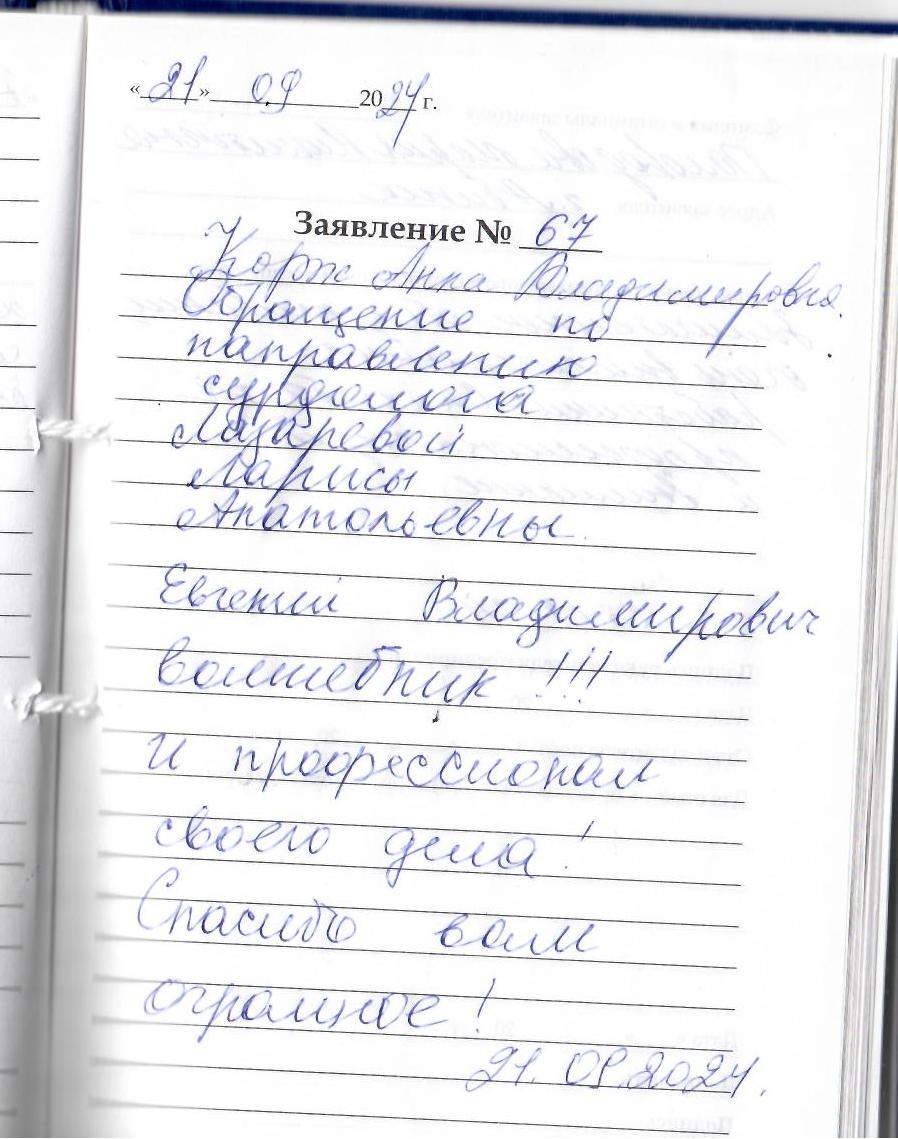 «21» 09 2024 г.
Заявление № 67
Корж Анна Владимировна.
Обращение по
направлению
сурдолога
Лазаревой
Ларисы
Анатольевны.
Евгений Владимирович
волшебник!!!
и профессионал
своего дела!
Спасибо вам
огромное!
21.09.2024.